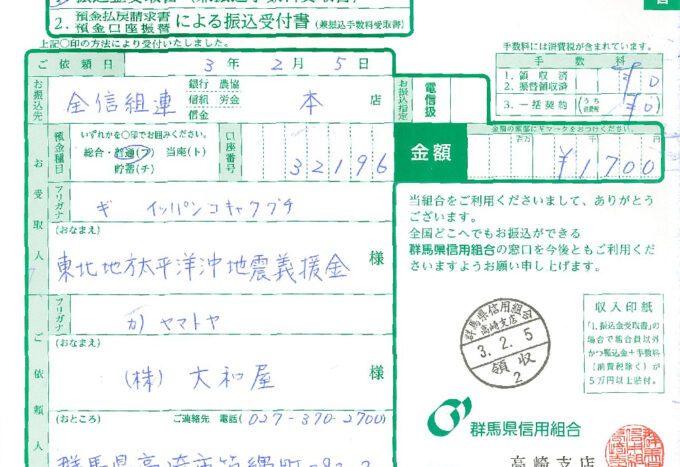 2. 預金払戻請求書
預金口座振替 による振込受付書 (兼振込手数料受取書)
上記○印の方法により受付いたしました。
手数料には消費税が含まれています。
ご依頼日 3年 2月 5日
手数料
1. 領収済
2. 振替領収済
¥0
3. 一括契約 (うち消費税 ¥0)
お振込先
全信組連
銀行 農協
信組 労金
信金
本 店
お振込指定
電信扱
預金種目
いずれかを○印でお囲みください。
総合・普通(フ) 当座(ト)
貯蓄(チ)
口座番号
32196
金額
金額の頭部に¥マークをおつけください。
¥1700
お受取人
フリガナ
ギ イッパンコキャクグチ
(おなまえ)
東北地方太平洋沖地震義援金 様
当組合をご利用くださいまして、ありがとう
ございます。
全国どこへでもお振込ができる
群馬県信用組合の窓口を今後ともご利用くだ
さいますようお願い申し上げます。
ご依頼人
フリガナ
カ) ヤマトヤ
(おなまえ)
(株) 大和屋 様
(おところ) ご連絡先 電話(027-370-2700)
群馬県高崎市筑縄町
群馬県信用組合
高崎支店
3.2.5
領収
2
収入印紙
「1.振込金受取書」の
場合で組合員以外
かつ振込金+手数料
(消費税除く)が
5万円以上貼付。
群馬県信用組合
高崎支店